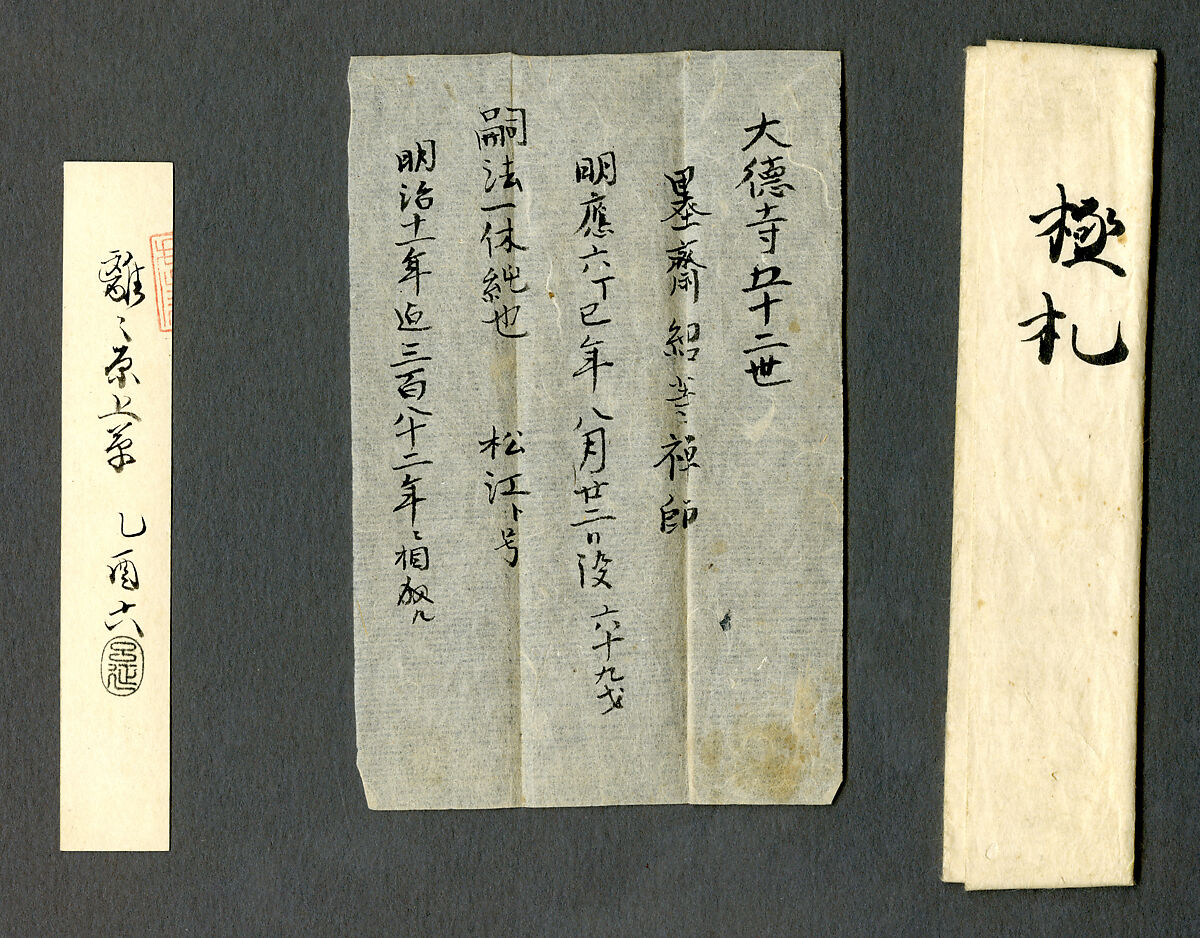 極札
大德寺五十二世
墨齋紹等禅師
明應六丁巳年八月廿二日没 六十九才
嗣法一休純也 松江ト号
明治十一年迠三百八十二年ニ相成ル
離〻原上草 乙酉六